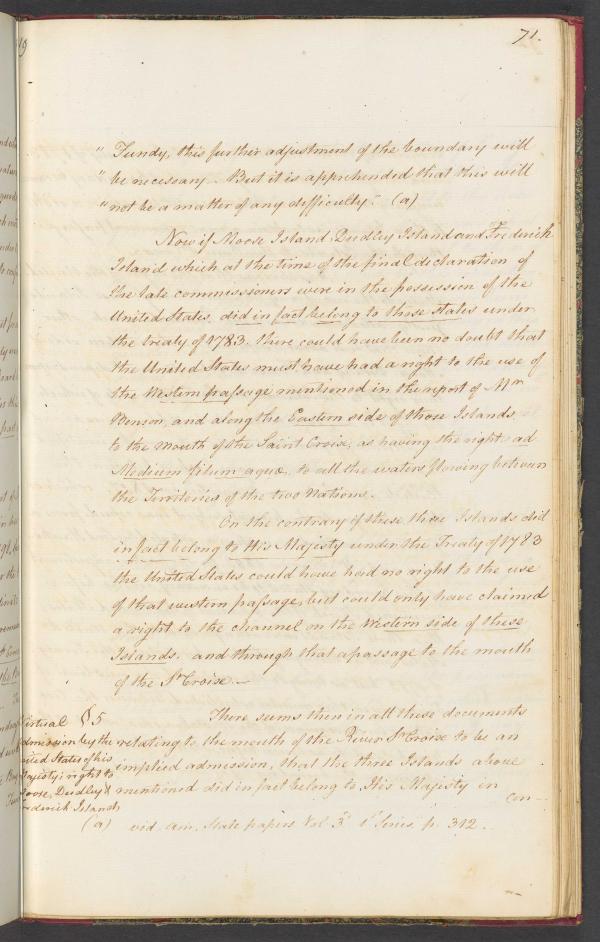 71.
" Fundy, this further adjustment of the boundary will
" be necessary. But it is apprehended that this will
" not be a matter of any difficulty." (a)
Now if Moose Island, Dudley Island and Frederick
Island which at the time of the final declaration of
the late commissioners were in the possession of the
United States, did in fact belong to those states under
the treaty of 1783. there could have been no doubt that
the United States must have had a right to the use of
the Western passage mentioned in the report of Mr.
Benson, and along the Eastern side of those Islands
to the mouth of the Saint Croix, as having the right ad
Medium filum aquæ, to all the waters flowing between
the Territories of the two Nations.
On the contrary if these three Islands did
in fact belong to His Majesty under the Treaty of 1783
the United States could have had no right to the use
of that western passage, but could only have claimed
a right to the channel on the Western side of these
Islands. and through that a passage to the mouth
of the St. Croix.—
There seems then in all these documents
relating to the mouth of the River St. Croix to be an
implied admission, that the three Islands above
mentioned did in fact belong to His Majesty in
con—
Virtual §5
admission by the
United States of his
Majesty's right to
Moose, Dudley &
Frederick Islands
(a) vid. am. State papers Vol. 3d. 1st Series p. 342.